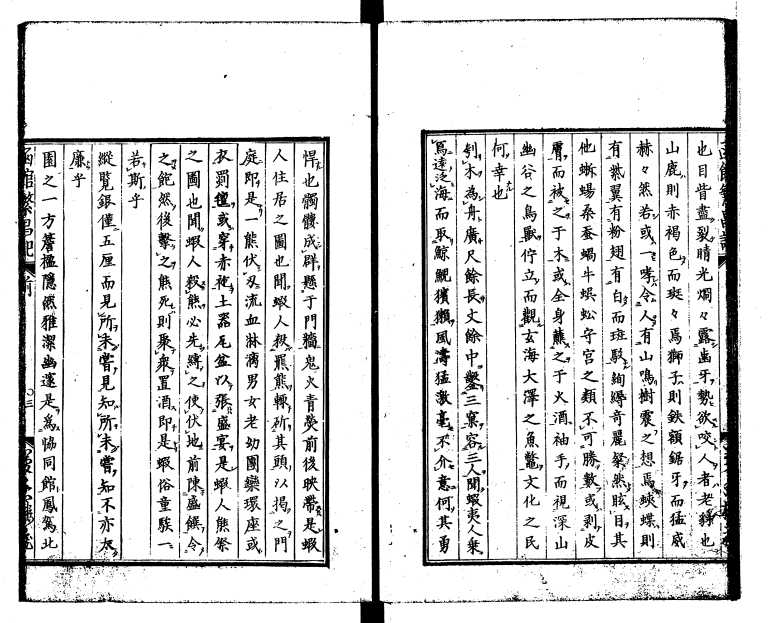 也目眥盡裂睛光燗々露齒牙勢欲咬人者老貉也
山鹿則赤褐色而斑々焉獅子則鉄額鋸牙而猛威
赫々然若或一哮令人有山鳴樹震之想焉蛺蝶則
有氀翼有粉翅有白而斑駁絢縟奇麗粲然眩目其
他蜥蜴桑蚕蝸牛蜈蚣守宮之類不可勝數或剥皮
膚而被之于木或全身蘸之于火酒袖手而視深山
幽谷之鳥獸佇立而觀玄海大澤之魚鼈文化之民
何幸也
刳木為舟廣尺餘長丈餘中鑿三窠容三人聞蝦夷人乗
焉遠泛海而取鯨鯢獱獺風濤猛激毫不介意何其勇
悍也髑髏成群懸于門牆鬼火青熒前後映帶是蝦
人住居之圖也聞蝦人殺羆熊轢斫其頭以揭之門
庭即是一熊伏刃流血淋漓男女老幼團欒環座或
衣罽氊或穿赤裎土器瓦盆以張盛宴是蝦人熊祭
之圖也聞蝦人殺熊必先縛之使伏地前陳盛饌令
之飽然後擊之熊死則聚衆置酒即是蝦俗童駭一
若斯乎
縱覽銀僅五厘而見所未嘗見知所未嘗知不亦太
廉乎
園之一方簷楹隱然雅潔幽邃是為協同館鳳鴛北
函館繁昌記
三